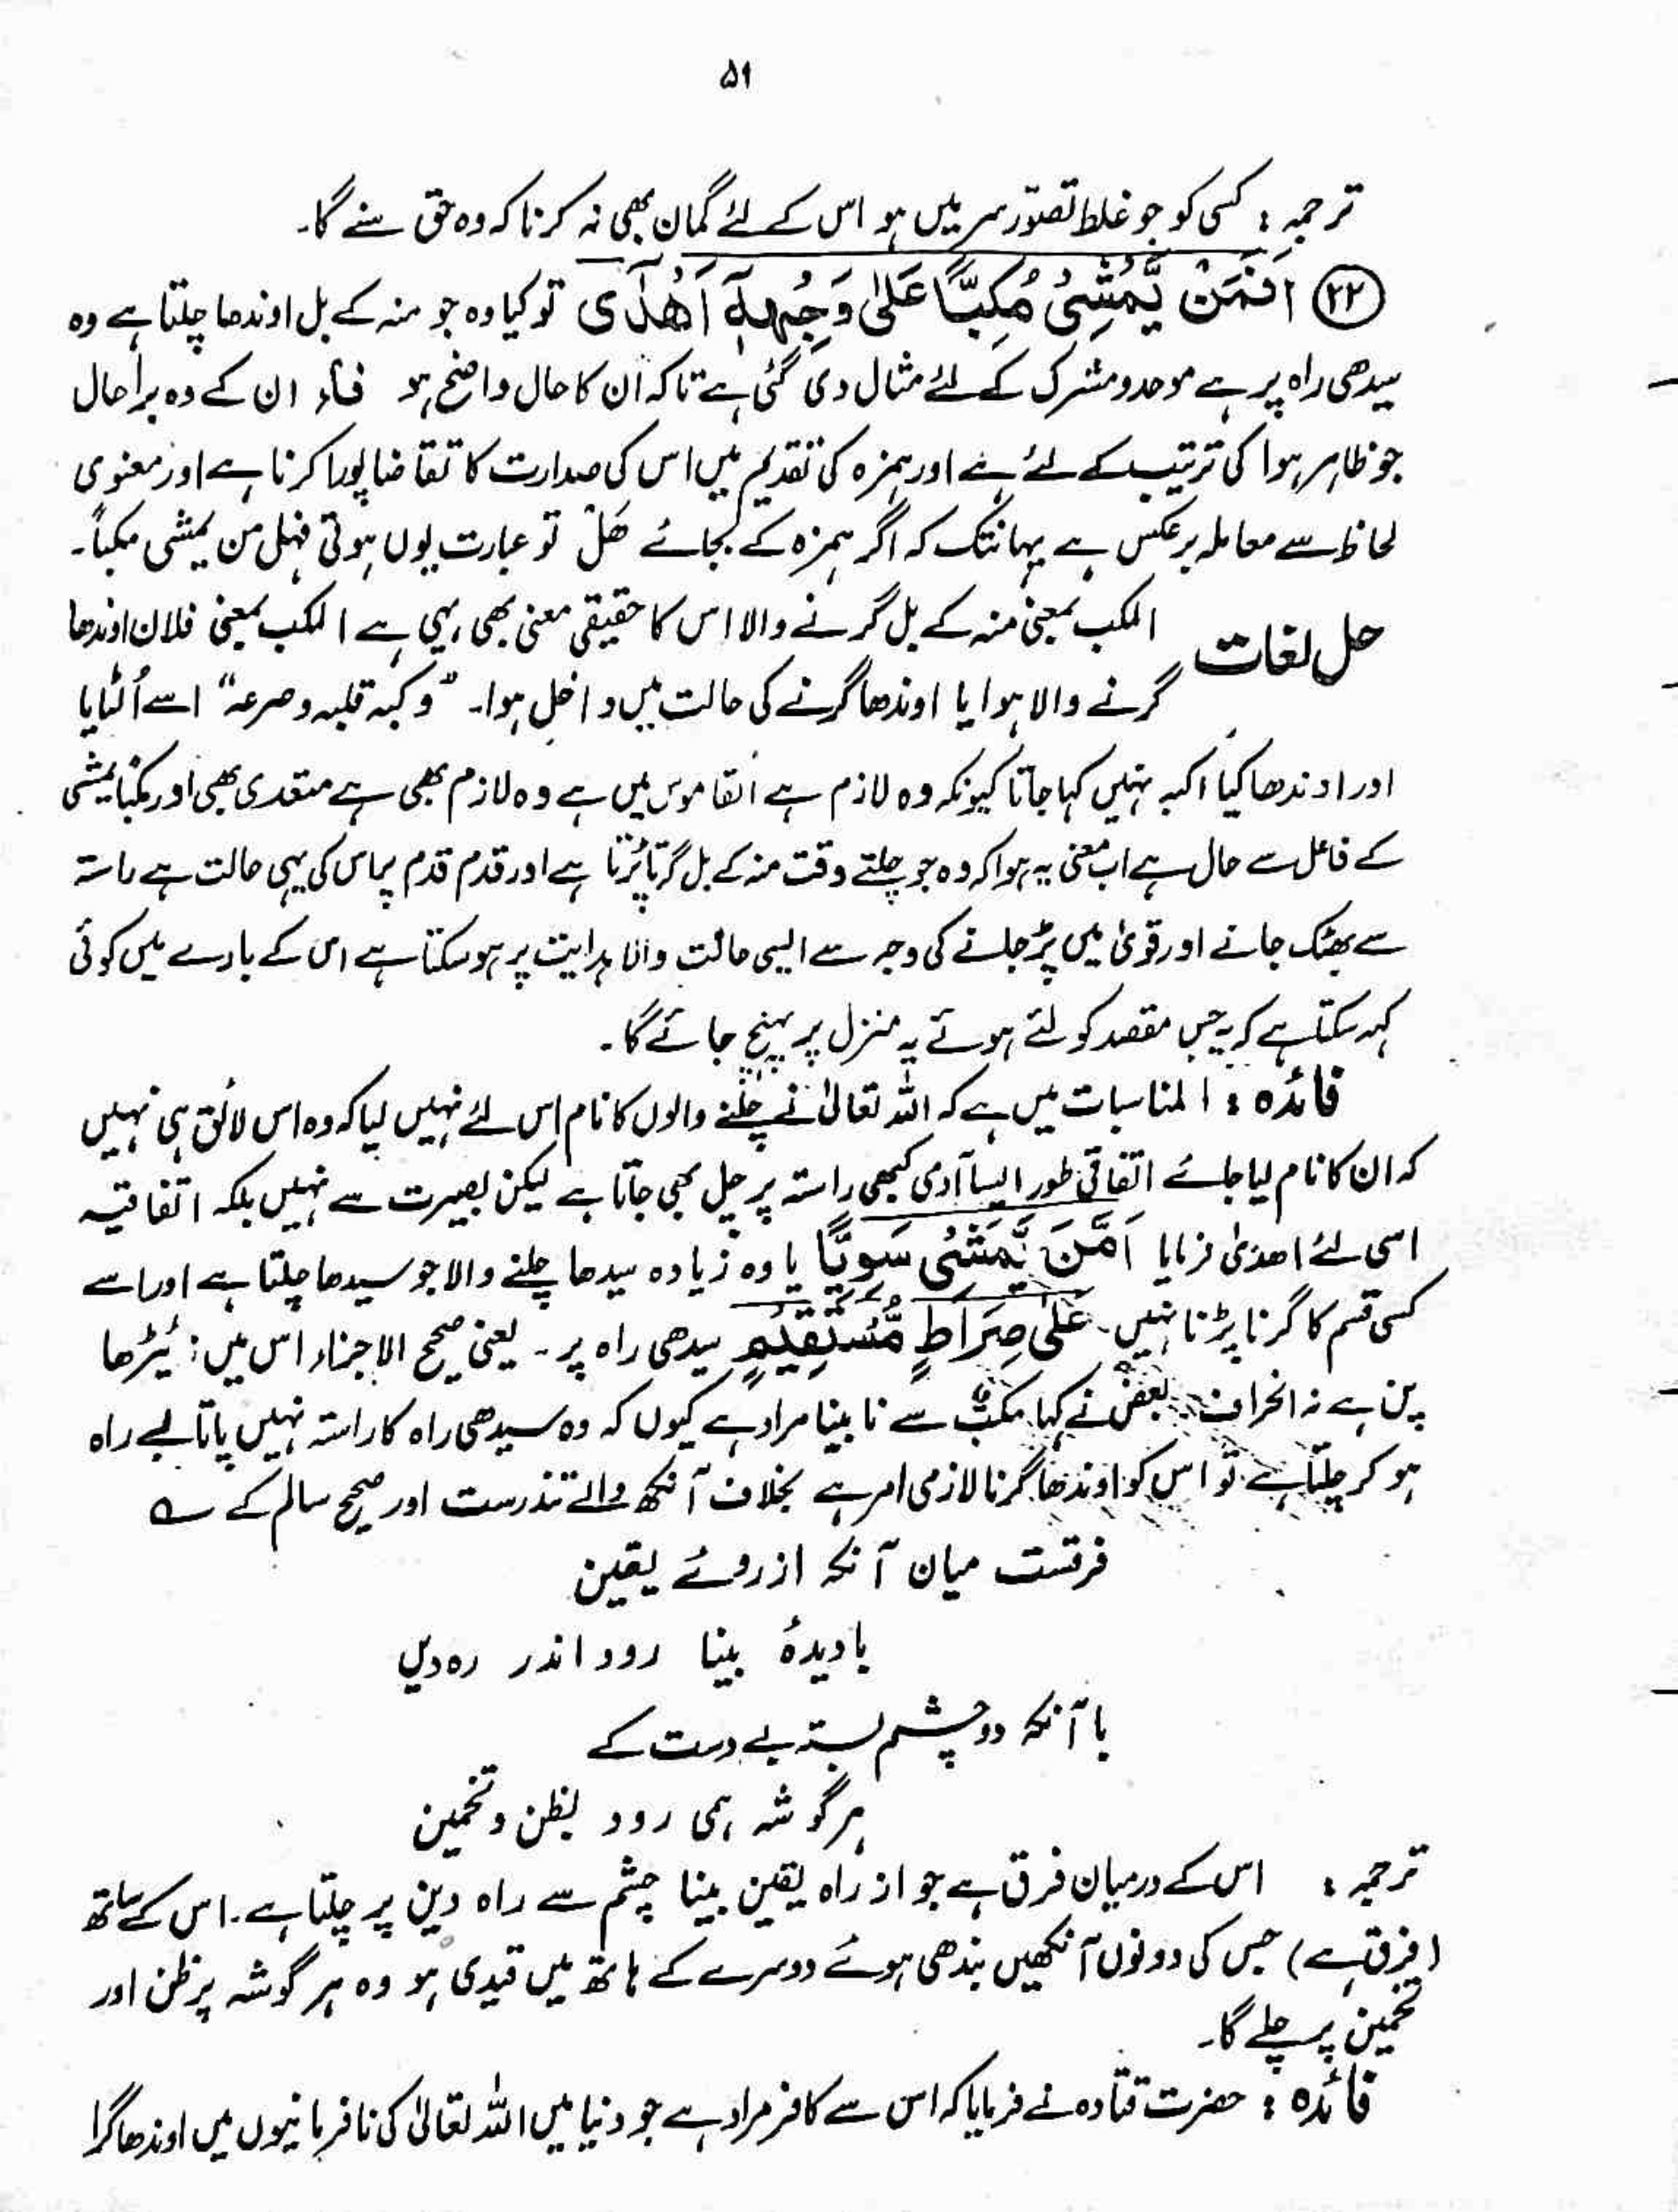 ۵۱
ترجمہ : کسی کو جو غلط تصوّر سر میں ہو اس کے لئے گمان بھی نہ کرنا کہ وہ حق سنے گا۔
(۲۲) اَفَمَنْ یَّمْشِیْ مُکِبًّا عَلٰی وَجْہِہٖۤ اَھْدٰۤی تو کیا وہ جو منہ کے بل اوندھا چلتا ہے وہ
سیدھی راہ پر ہے موحد و مشرک کے لئے مثال دی گئی ہے تاکہ ان کا حال واضح ہو فاء ان کے وہ برا حال
جو ظاہر ہوا کی ترتیب کے لئے ہے اور ہمزہ کی تقدیم میں اس کی صدارت کا تقاضا پورا کرنا ہے اور معنوی
لحاظ سے معاملہ برعکس ہے یہانتک کہ اگر ہمزہ کے بجائے ھَلْ تو عبارت یوں ہوتی فہل من یمشی مکباً۔
حل لغات المکب بمعنی منہ کے بل گرنے والا اس کا حقیقی معنی بھی یہی ہے المکب بمعنی فلان اوندھا
گرنے والا ہوا یا اوندھا گرنے کی حالت میں داخل ہوا۔ "وکبہ قلبہ و صرعہ" اسے اُلٹایا
اور اوندھا کیا اکبہ نہیں کہا جاتا کیونکہ وہ لازم ہے القاموس میں ہے وہ لازم بھی ہے متعدی بھی اور مکبا یمشی
کے فاعل سے حال ہے اب معنی یہ ہوا کہ وہ جو چلتے وقت منہ کے بل گرتا پڑتا ہے اور قدم قدم پر اس کی یہی حالت ہے راستہ
سے بھٹک جانے اور قویٰ میں پڑ جانے کی وجہ سے ایسی حالت والا ہدایت پر ہو سکتا ہے اس کے بارے میں کوئی
کہہ سکتا ہے کہ یہ جس مقصد کو لئے ہوئے یہ منزل پر پہنچ جائے گا۔
فائدہ : المناسبات میں ہے کہ اللہ تعالیٰ نے چلنے والوں کا نام اس لئے نہیں لیا کہ وہ اس لائق ہی نہیں
کہ ان کا نام لیا جائے اتفاقی طور ایسا آدمی کبھی راستہ پر چل بھی جاتا ہے لیکن بصیرت سے نہیں بلکہ اتفاقیہ
اسی لئے اھدیٰ فرمایا اَمَّنْ یَّمْشِیْ سَوِیًّا یا وہ زیادہ سیدھا چلنے والا جو سیدھا چلتا ہے اور اسے
کسی قسم کا گرنا پڑنا نہیں۔ عَلٰی صِرَاطٍ مُّسْتَقِیْمٍ سیدھی راہ پر۔ یعنی صحیح الاجزاء اس میں نہ ٹیڑھا
پن ہے نہ انحراف۔ بعض نے کہا مکبٌّ سے نابینا مراد ہے کیوں کہ وہ سیدھی راہ کا راستہ نہیں پاتا بے راہ
ہو کر چلتا ہے تو اس کو اوندھا گرنا لازمی امر ہے بخلاف آنکھ والے تندرست اور صحیح سالم کے ؎
فرقست میان آنکہ از روئے یقین
بادیدۂ بینا رود اندر رہ دیں
با آنکہ دو چشم بستہ بے دست کے
ہر گوشہ ہمی رود بظن و تخمین
ترجمہ : اس کے درمیان فرق ہے جو از راہ یقین بینا چشم سے راہ دین پر چلتا ہے۔ اس کے ساتھ
(فرق ہے) جس کی دونوں آنکھیں بندھی ہوئے دوسرے کے ہاتھ میں قیدی ہو وہ ہر گوشہ پر ظن اور
تخمین پر چلے گا۔
فائدہ : حضرت قتادہ نے فرمایا کہ اس سے کافر مراد ہے جو دنیا میں اللہ تعالیٰ کی نافرمانیوں میں اوندھا گرا